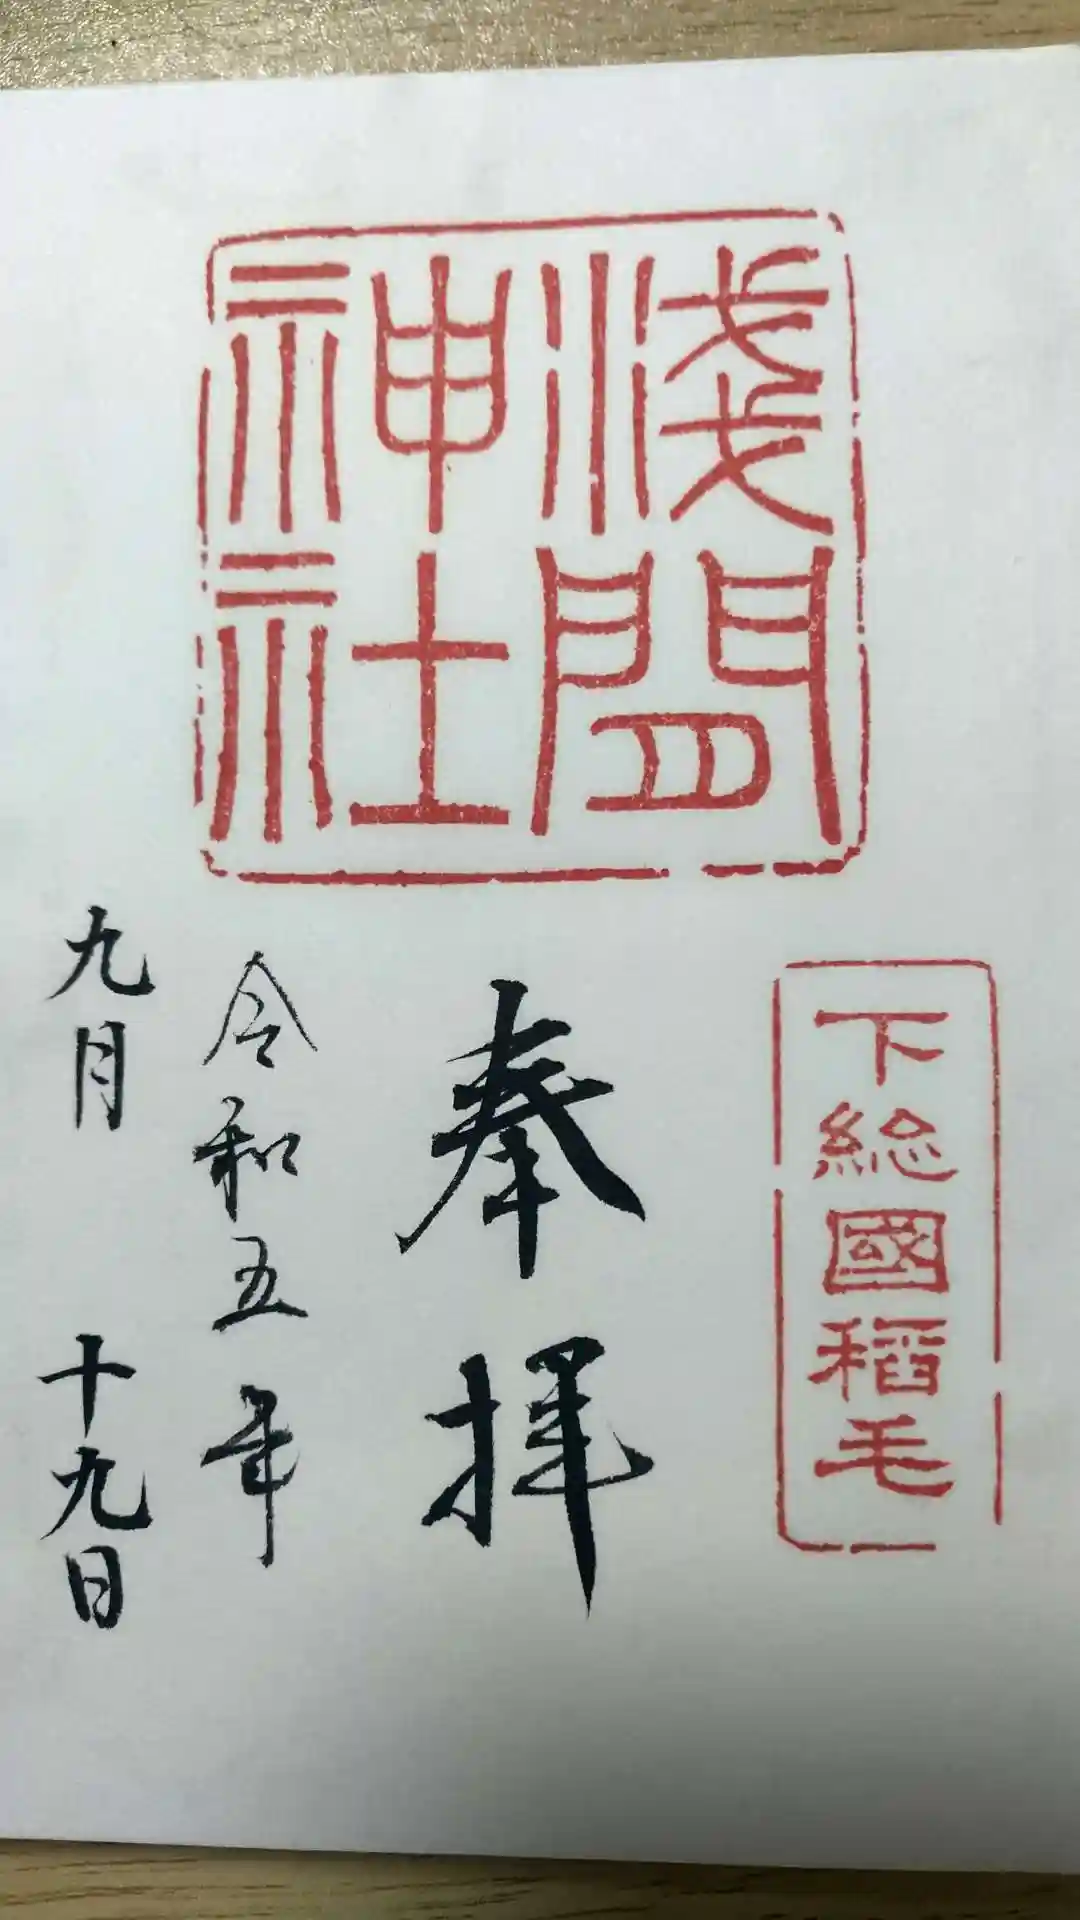 淺間
神社
下総國稲毛
奉拝
令和五年
九月 十九日